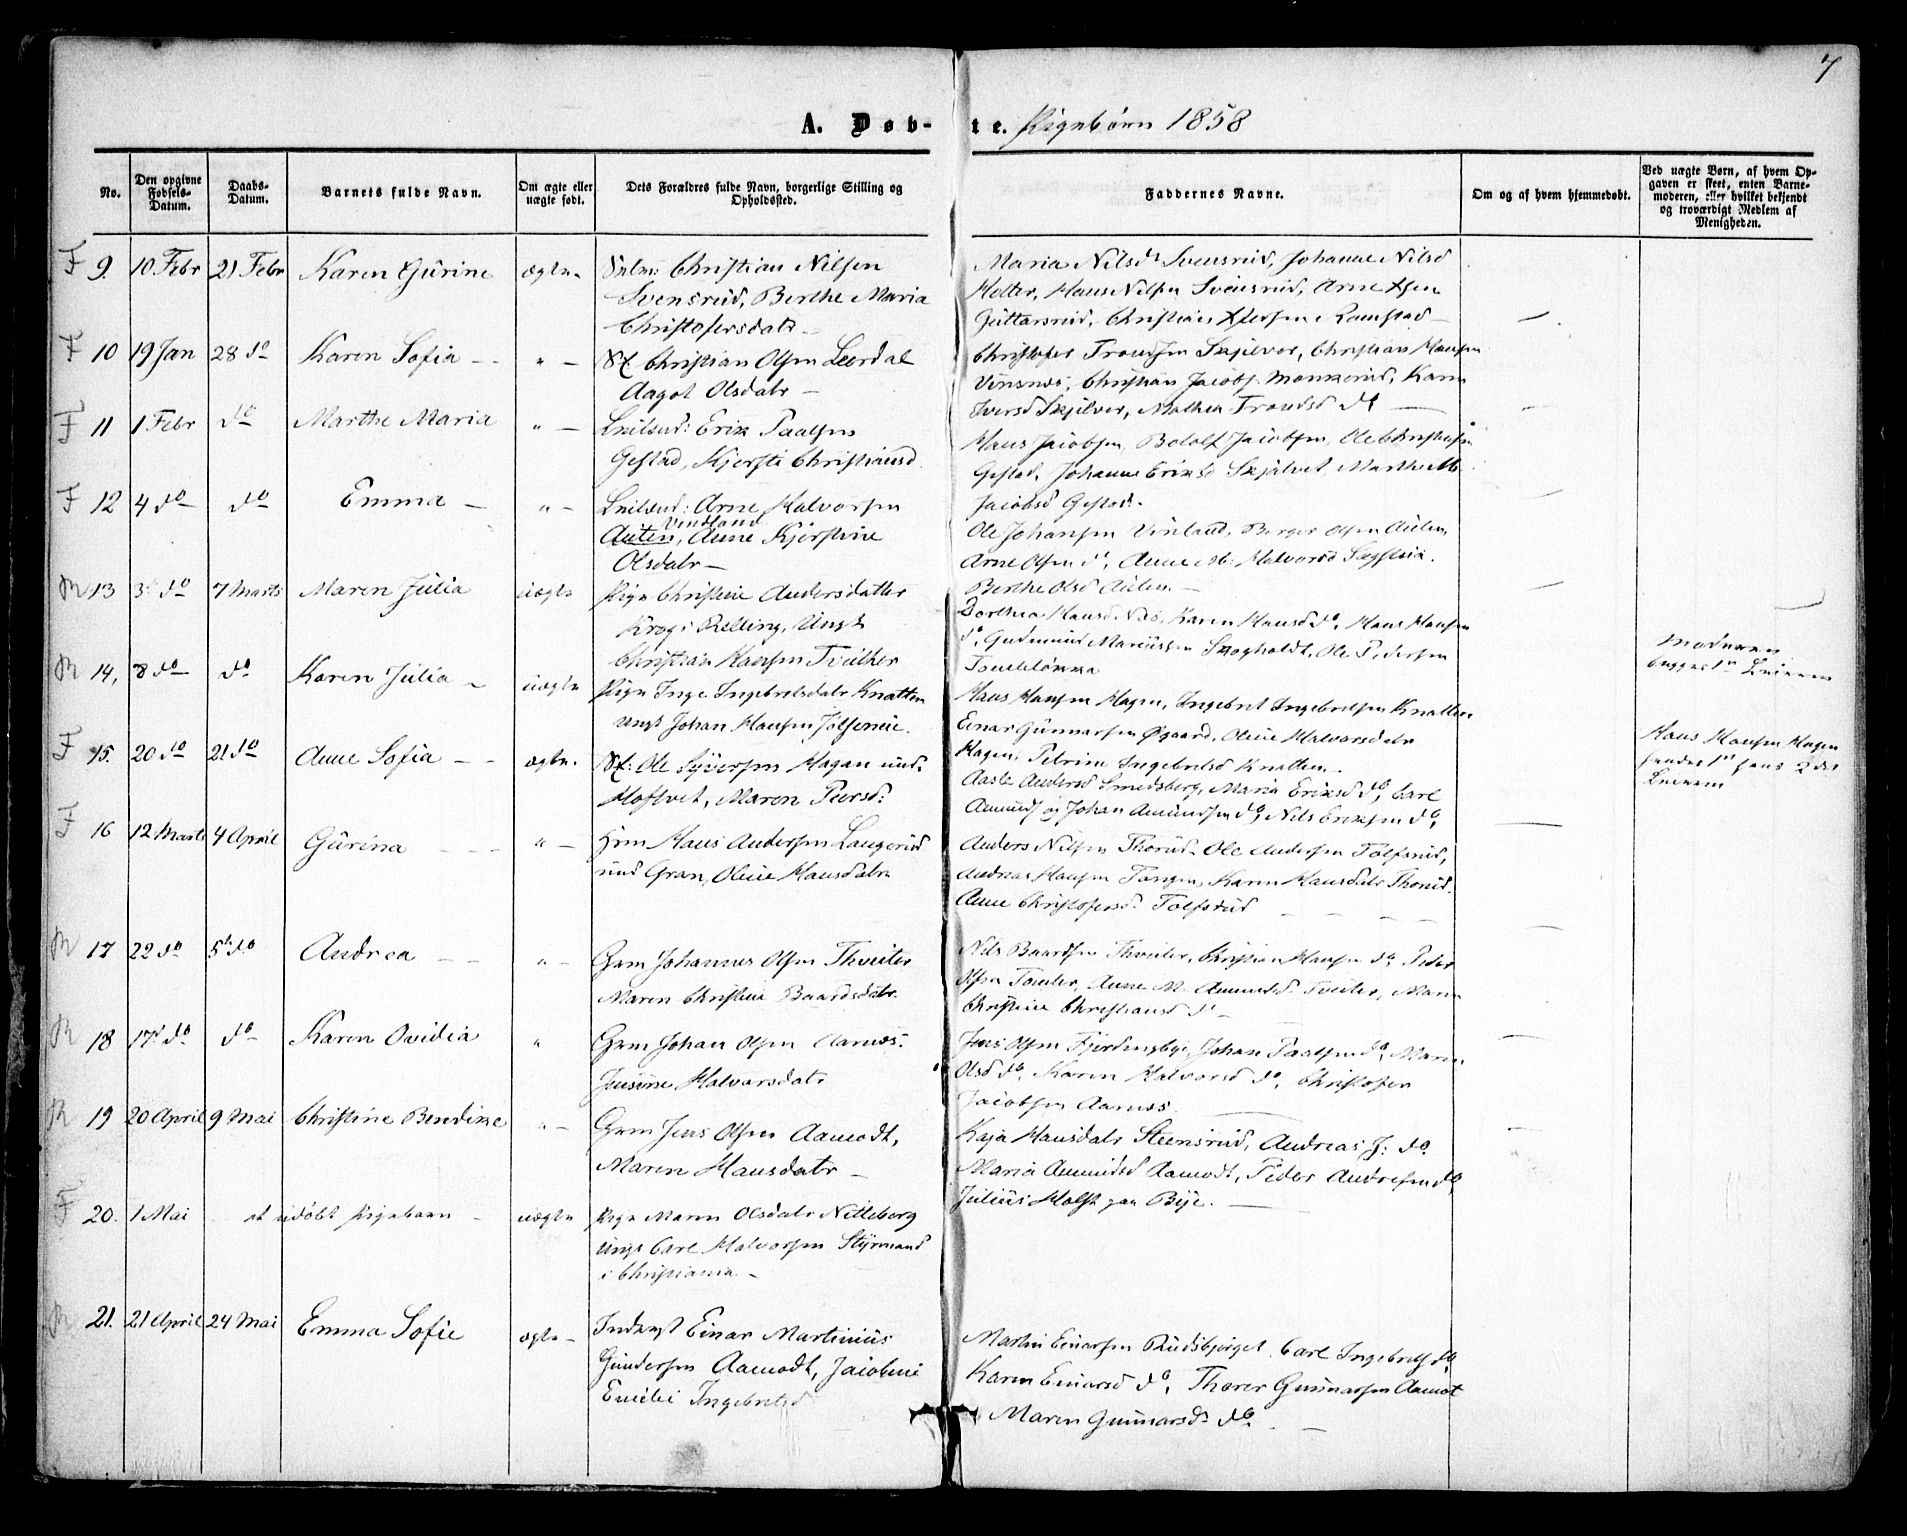 7
A. Døb- te. Pigebørn 1858
No.
Den opgivne Fødsels-Datum.
Daabs-Datum.
Barnets fulde Navn.
Om ægte eller uægte født.
Dets Forældres fulde Navn, borgerlige Stilling og Opholdssted.
Faddernes Navne.
Om og af hvem hjemmedøbt.
Ved uægte Børn, af hvem Opgaven er skeet, enten Barnemoderen, eller hvilket bekjendt og troværdigt Medlem af Menigheden.
F 9. 10 Febr 21 Febr Karen Gurine ægte Christian Nilsen
Svensrud, Berthe Maria
Christofersdatr
Maria Nilsd Svensrud, Johanne Nilsd
Holter, Hans Nilsen Svensrud, Arne
Guttersrud, Christian Ramstad
F 10 19 Jan 28 do Karen Sofia " Christian Olsen Leerdal
Aagot Olsdatr
Christofer Trondsen Skjelver, Christian Hansen
Vinsnes, Christian Jacobs. Monkerud, Karen
Iversd Skjelver, Mathea Trondsd do
F 11 1 Febr do Marthe Maria " Leilend: Erik Paalsen
Gestad, Kjersti Christiansd
Hans Jacobsen, Botolf Jacobsen, Ole Christiansen
Gestad, Johanne Eriksd Skjelver, Marthe M.
Jacobsd Gestad.
F 12 4 do do Emma " Leilend: Arne Halvorsen
Vindland
Auten, Anne Kjerstine
Olsdatr
Ole Johansen Vinland, Berger Olsen Auten,
Arne Olsen do, Anne M. Halvorsd
Berthe Olsd Auten
R 13 3 do 7 Marts Maren Julia uægte Pige Christine Andersdatter
Krog i Rælling, Ungk
Christian Hansen Tveiter
Dorthea Hansd Nes, Karen Hansd do, Hans Hansen
do, Gudmund Mariussen Skogholdt, Ole Pedersen
Toneløkka
Moderen
R 14, 8 do do Karen Julia uægte Pige Inge Ingebretsdatr Knatten
Ungk Johan Hansen
Hans Hansen Hagen, Ingebret Ingebretsen Knatten
Einar Gunnarsen Øgaard, Oline Halvorsdatr
Hagen, Petrine Ingebretsd Knatten
Hans Hansen Hagen
F 15. 20 do 21 do Anne Sofia ægte Ole Syversen Hagan und.
Hofsvet, Maren Peersd:
Aaste Andersd Smedsberg, Maria Eriksd do, Carl
Amunds og Johan Amundsen do, Nils Eriksen do,
F 16 12 Marts 4 April Gurina " Hans Andersen Langerud
und Gran, Oline Hansdatr
Anders Nilsen Thorud, Ole Andersen Tolfsrud,
Andreas Hansen Tangen, Karen Hansdatr Thorud.
Anne Christofersd. Tolfsrud
R 17 22 do 5te do Andrea " Grm Johannes Olsen Thveiter
Maren Christine Baardsdatr.
Nils Baardsen Thveiter, Christian Hansen do, Peder
Olsen Tveiter, Anne M. Amundsd. Tveiter, Maren
Christine Christiansd do
R 18 17 do do Karen Ovidia " Grm Johan Olsen Aarnæs.
Jensine Halvorsdatr
Jens Olsen Fjerdingbye, Johan Paalsen do, Maren
Olsd do, Karen Halvorsd do, Christofer
Jacobsen Aarnæs
R 19 20 April 9 Mai Christine Bendine " Grm Jens Olsen Aamodt,
Maren Hansdatr
Kaja Hansdatr Steensrud, Andreas J. do
Maria Amundsd Aamodt, Peder Andresen do,
Julius Holst paa Bye.
F 20. 1 Mai et udøbt Pigebarn uægte Pige Maren Olsdatr Nitteberg
Ungk Carl Halvorsen Styrmand
i Christiania
R 21. 21 April 24 Mai Emma Sofie ægte Inderst Einar Martinius
Gundersen Aamodt, Jacobine
Emilie Ingebretsd
Martin Einarsen Rudsbjerget, Carl Ingebretsen do,
Karen Einarsd do, Thorer Gunnarsen Aamot
Maren Gunnarsd do.